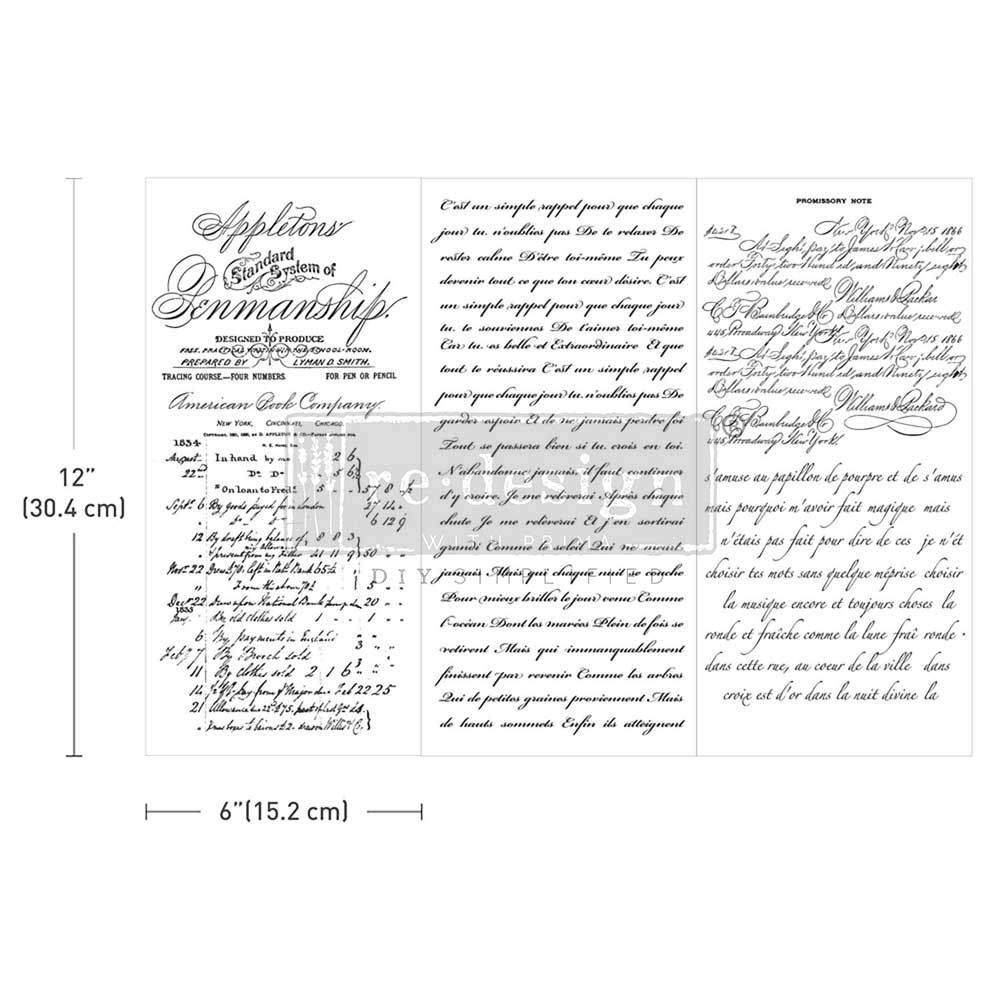 Appletons'
Standard
System of
Penmanship.
DESIGNED TO PRODUCE
FREE, PRACTICAL
PREPARED BY LYMAN D. SMITH.
TRACING COURSE—FOUR NUMBERS. FOR PEN OR PENCIL
American Book Company.
NEW YORK, CINCINNATI, CHICAGO.
1834
August In hand by me 2 6
22nd Do Do 5 6
"On loan to Fredk 5
Septr. 6 By goods payed for in London
12 By draft being balance of 8 8 3
my allowance
present from my Father 21 11 9
Novr 22
Decr 22 Drew upon National Bank 20
1835
Jany. By old clothes sold 1 1
6 By payments in England
Feby 7 By Brooch sold
11 By clothes sold 2 1 6
14 Feb 22 25
21 Allowance
C'est un simple rappel pour que chaque
jour tu n'oublies pas De te relaxer De
rester calme D'être toi-même Tu peux
devenir tout ce que ton cœur désire. C'est
un simple rappel pour que chaque jour
tu te souviennes De t'aimer toi-même
Car tu es belle et Extraordinaire Et que
tout te réussira C'est un simple rappel
pour que chaque jour tu n'oublies pas De
garder espoir Et de ne jamais perdre foi
Tout se passera bien si tu crois en toi.
N'abandonne jamais, il faut continuer
d'y croire. Je me relèverai Après chaque
chute Je me relèverai Et j'en sortirai
grandi Comme le soleil Qui ne meurt
jamais Mais qui chaque nuit se couche
Pour mieux briller le jour venu Comme
l'océan Dont les marées Plein de fois se
retirent Mais qui immanquablement
finissent par revenir Comme les arbres
Qui de petites graines proviennent Mais
de hauts sommets Enfin ils atteignent
PROMISSORY NOTE
New York Nov 15 1866
At Sight, pay to James W Carr, bill or
order Forty two Hundred and Ninety eight
Dollars value received
Williams & Packar
C. F. Bainbridge & Co Dollars value received
445, Broadway New York New York Nov 15 1866
At Sight, pay to James W Carr, bill or
order Forty two Hundred and Ninety eight
Dollars value received
Williams & Packard
C. F. Bainbridge & Co
445, Broadway New York
s'amuse au papillon de pourpre et de s'amus
mais pourquoi m'avoir fait magique mais
n'étais pas fait pour dire de ces je n'ét
choisir tes mots sans quelque méprise choisir
la musique encore et toujours choses la
ronde et fraîche comme la lune fraî ronde
dans cette rue, au coeur de la ville dans
croix est d'or dans la nuit divine la
re·design
WITH PRIMA
DIY SIMPLIFIED
12"
(30.4 cm)
6"(15.2 cm)